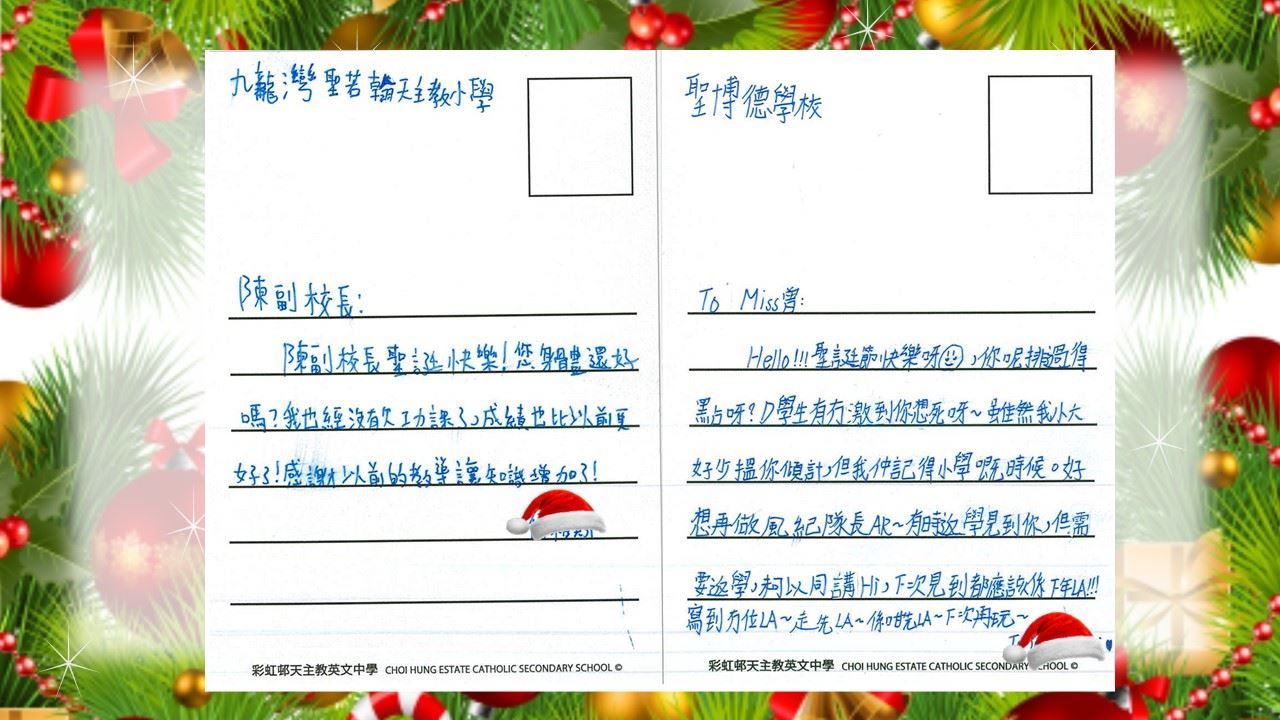 九龍灣聖若翰天主教小學
陳副校長:
陳副校長聖誕快樂!您身體還好
嗎?我也經沒有欠功課了,成績也比以前更
好了!感謝以前的教導讓知識增加了!
彩虹邨天主教英文中學 CHOI HUNG ESTATE CATHOLIC SECONDARY SCHOOL ©
聖博德學校
To Miss曾:
Hello!!!聖誕節快樂呀☺,你呢排過得
點呀?D學生有冇激到你想死呀~雖然我小大
好少搵你傾計,但我仲記得小學嘅時候。好
想再做風紀隊長AR~有時返學見到你,但需
要返學,所以同講Hi,下次見到都應該係下年LA!!!
寫到冇位LA~走先LA~係咁先LA~下次再玩~
彩虹邨天主教英文中學 CHOI HUNG ESTATE CATHOLIC SECONDARY SCHOOL ©